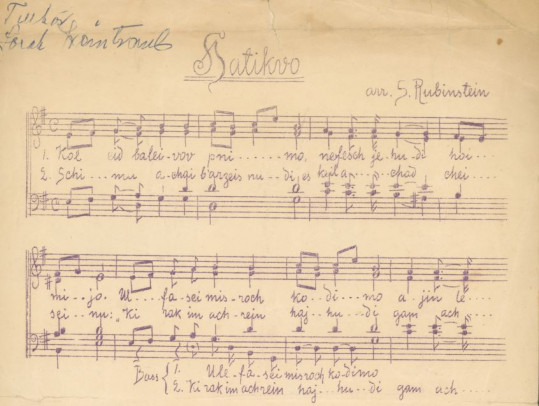 Hatikvo
arr. S. Rubinstein
1. Kol eid balei-vov pni......mo, nefesch je-hu-di hoi...
2. Schi...mu a-chgi b'arzeis nu..di, es kol a...chad chei....
mi..jo. Ul...fa-sei mis-roch ko..di..mo a-jin le...
sei..nu: Ki rak im ach-rein haj..hu..di gam ach....
Bass 1. Ule-fa-sei misroch ko-dimo
2. Ki rak im achrein haj..hu..di gam ach....